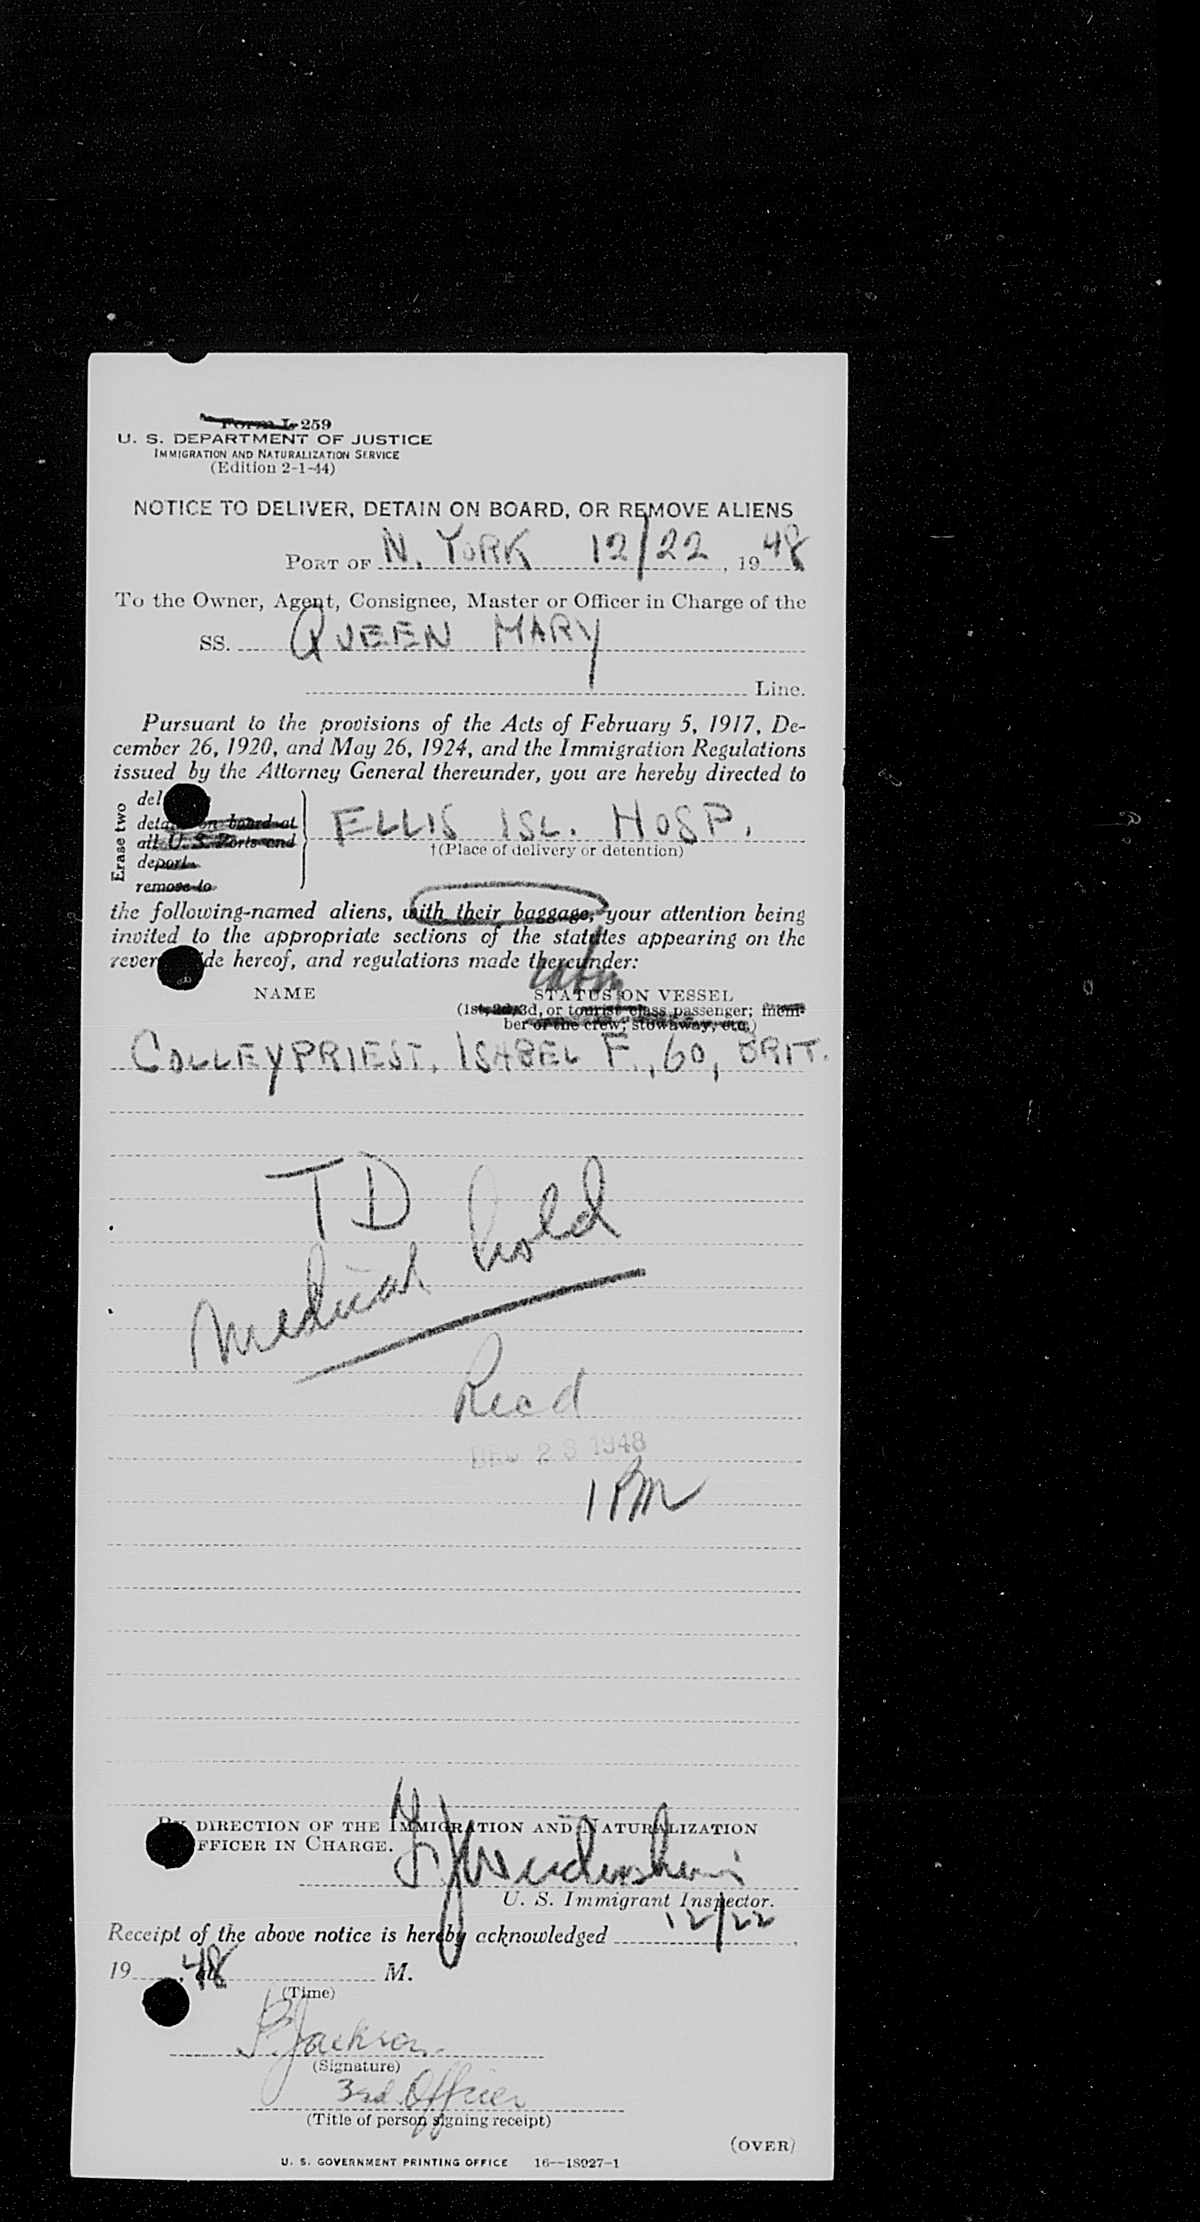 Form I-259
U. S. DEPARTMENT OF JUSTICE
IMMIGRATION AND NATURALIZATION SERVICE
(Edition 2-1-44)
NOTICE TO DELIVER, DETAIN ON BOARD, OR REMOVE ALIENS
PORT OF N. YORK 12/22, 1948
To the Owner, Agent, Consignee, Master or Officer in Charge of the
SS. QUEEN MARY
Line.
Pursuant to the provisions of the Acts of February 5, 1917, De-
cember 26, 1920, and May 26, 1924, and the Immigration Regulations
issued by the Attorney General thereunder, you are hereby directed to
Erase two
del
deta on board at
all U. S. Ports and
deport
remove to
ELLIS ISL. HOSP.
†(Place of delivery or detention)
the following-named aliens, with their baggage, your attention being
invited to the appropriate sections of the statutes appearing on the
rever de hereof, and regulations made thereunder:
NAME
STATUS ON VESSEL
(1st, 2d, 3d, or tourist class passenger; mem-
ber of the crew; stowaway, etc.)
COLLEYPRIEST, ISABEL F., 60, BRIT.
TD
Medical hold
Recd
DEC 23 1948
1 PM
BY DIRECTION OF THE IMMIGRATION AND NATURALIZATION
FFICER IN CHARGE.
U. S. Immigrant Inspector.
Receipt of the above notice is hereby acknowledged 12/22,
19 48, at M.
(Time)
P. Jackson
(Signature)
3rd. Officer
(Title of person signing receipt)
(OVER)
U. S. GOVERNMENT PRINTING OFFICE 16—18927-1